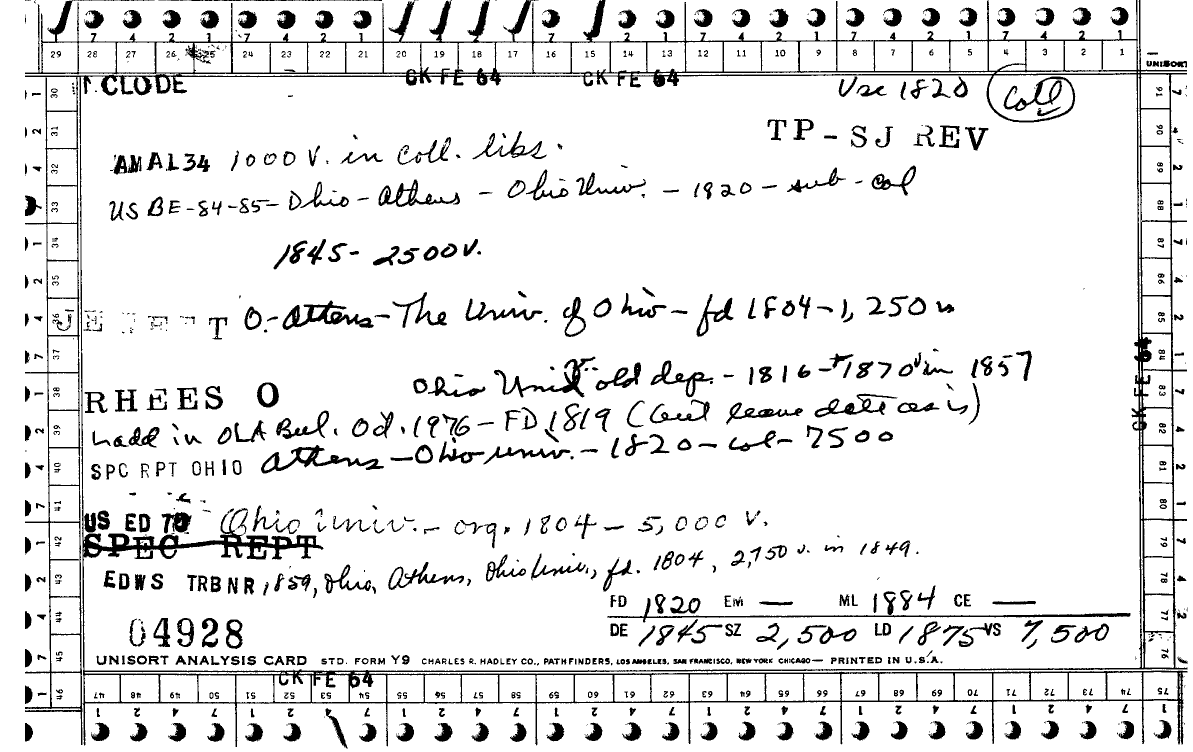 7 4 2 1 7 4 2 1 7 4 2 1 7 4 2 1 7 4 2 1 7 4 2 1 7 4 2 1
29 28 27 26 25 24 23 22 21 20 19 18 17 16 15 14 13 12 11 10 9 8 7 6 5 4 3 2 1
UNISORT
CLODE CK FE 64 CK FE 64 Use 1820 Coll
TP-SJ REV
AMAL34 1000 V. in coll. libs.
US BE-84-85-Ohio-Athens-Ohio Univ.-1820-sub-col
1845-2500V.
O.-Athens-The Univ. of Ohio-fd 1804-1,250 vs
Ohio Univ. old dep.-1816-1870 v in 1857
RHEES O
hadd in OLA Bul. Oct. 1976-FD 1819 (but leave date as is)
SPC RPT OHIO Athens-Ohio univ.-1820-col-7500
US ED 70 Ohio Univ.-org. 1804-5,000 V.
SPEC REPT
EDWS TRBNR 1859, Ohio, Athens, Ohio Univ., fd. 1804, 2,750 v. in 1849.
FD 1820 EM — ML 1884 CE —
04928 DE 1845 SZ 2,500 LD 1875 VS 7,500
UNISORT ANALYSIS CARD STD. FORM Y9 CHARLES R. HADLEY CO., PATHFINDERS, LOS ANGELES, SAN FRANCISCO, NEW YORK CHICAGO— PRINTED IN U.S.A.
CK FE 64
46 47 48 49 50 51 52 53 54 55 56 57 58 59 60 61 62 63 64 65 66 67 68 69 70 71 72 73 74 75
CK FE 64